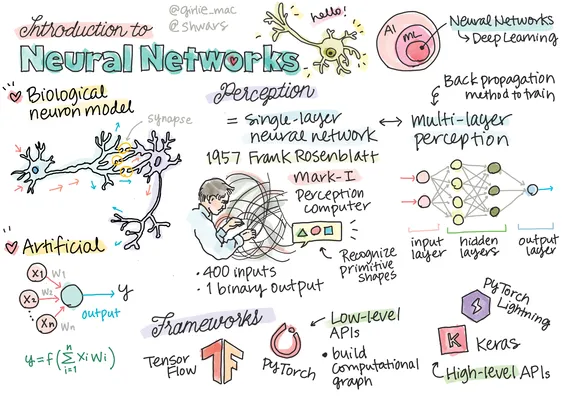 Introduction to
Neural Networks
@girlie_mac
@shwars
hello!
AI
ML
Neural Networks
↳ Deep Learning
Biological
neuron model
synapse
Artificial
X1
X2
Xn
W1
W2
Wn
y
output
y=f(∑ xiwi)
n
i=1
Perception
= Single-layer
neural network
1957 Frank Rosenblatt
Mark-I
Perception
computer
Recognize
primitive
shapes
• 400 inputs
• 1 binary output
Back propagation
method to train
↔ multi-layer
perception
input
layer
hidden
layers
output
layer
Frameworks
Tensor
Flow
PyTorch
Low-level
APIs
• build
computational
graph
PyTorch
Lightning
Keras
High-level APIs